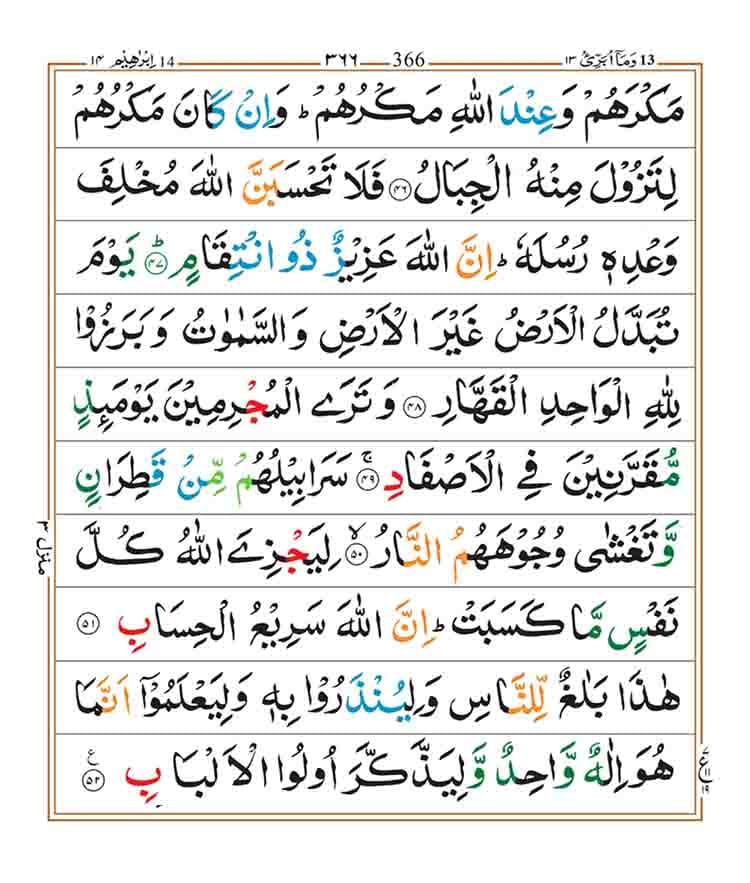 ١٤ اِبْرٰهِيْم 14 ٣٦٦ 366 ١٣ وَمَاۤ اُبَرِّئُ 13
مَكْرَهُمْ وَعِنْدَ اللّٰهِ مَكْرُهُمْ ؕ وَاِنْ كَانَ مَكْرُهُمْ
لِتَزُوْلَ مِنْهُ الْجِبَالُ ﴿۴۶﴾ فَلَا تَحْسَبَنَّ اللّٰهَ مُخْلِفَ
وَعْدِهٖ رُسُلَهٗ ؕ اِنَّ اللّٰهَ عَزِيْزٌ ذُو انْتِقَامٍ ؕ﴿۴۷﴾ يَوْمَ
تُبَدَّلُ الْاَرْضُ غَيْرَ الْاَرْضِ وَالسَّمٰوٰتُ وَبَرَزُوْا
لِلّٰهِ الْوَاحِدِ الْقَهَّارِ ﴿۴۸﴾ وَتَرَى الْمُجْرِمِيْنَ يَوْمَىِٕذٍ
مُّقَرَّنِيْنَ فِى الْاَصْفَادِ ۚ﴿۴۹﴾ سَرَابِيْلُهُمْ مِّنْ قَطِرَانٍ
وَّتَغْشٰى وُجُوْهَهُمُ النَّارُ ۙ﴿۵۰﴾ لِيَجْزِىَ اللّٰهُ كُلَّ
نَفْسٍ مَّا كَسَبَتْ ؕ اِنَّ اللّٰهَ سَرِيْعُ الْحِسَابِ ﴿۵۱﴾
هٰذَا بَلٰغٌ لِّلنَّاسِ وَلِيُنْذَرُوْا بِهٖ وَلِيَعْلَمُوْۤا اَنَّمَا
هُوَ اِلٰهٌ وَّاحِدٌ وَّلِيَذَّكَّرَ اُولُوا الْاَلْبَابِ ﴿۵۲﴾ ع
منزل ٣
٧ ع ١١ ١٩